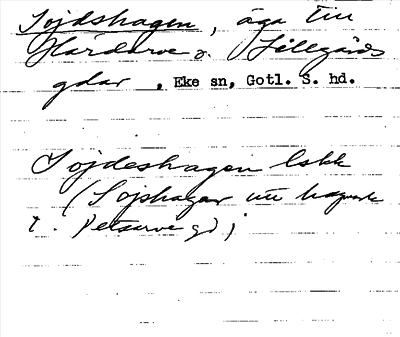 Söjdshagen, äga till
Hardarve o. Lillgårds
gdar, Eke sn, Gotl. S. hd.
Söjdeshagen lskk
(Söjshagar
t. Petsarve gd;